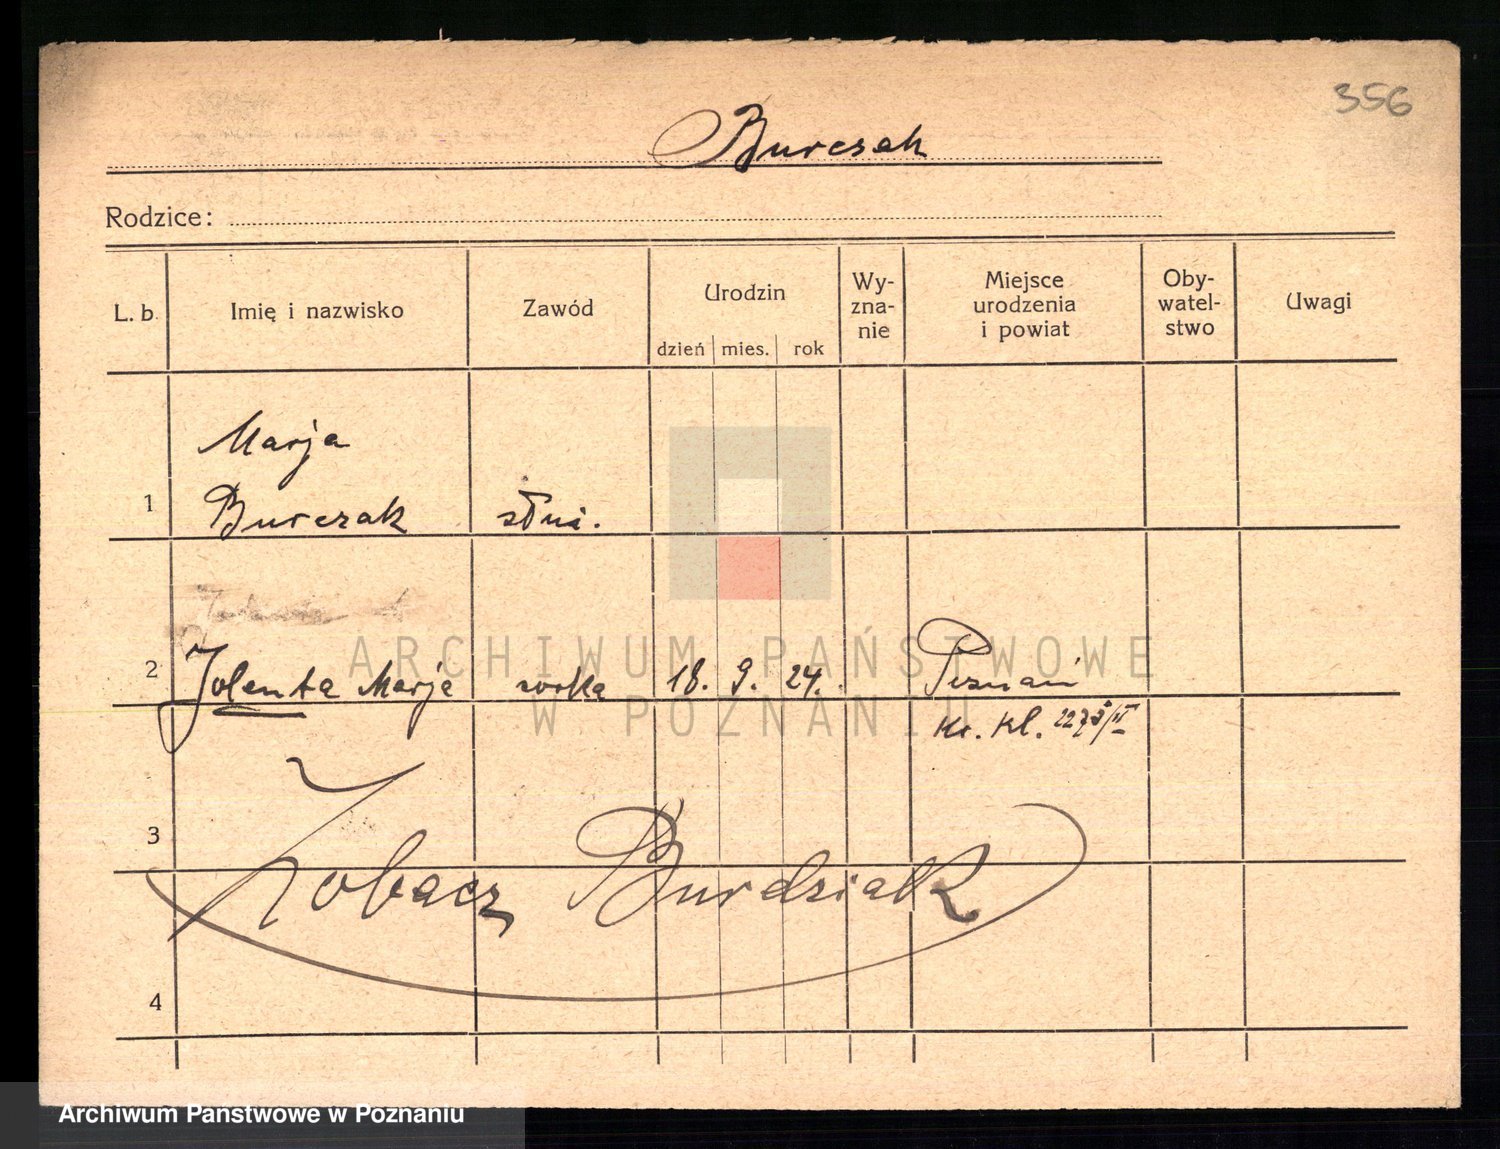 356
Burczak
Rodzice:
L. b. Imię i nazwisko Zawód Urodzin dzień mies. rok Wy-zna-nie Miejsce urodzenia i powiat Oby-watel-stwo Uwagi
Marja
1 Burczak służ.
2 Jolenta Marja córka 18. 9. 24. Poznań
Kr. Kl.
3
Zobacz Burdziak
4
ARCHIWUM PAŃSTWOWE
W POZNANIU
Archiwum Państwowe w Poznaniu